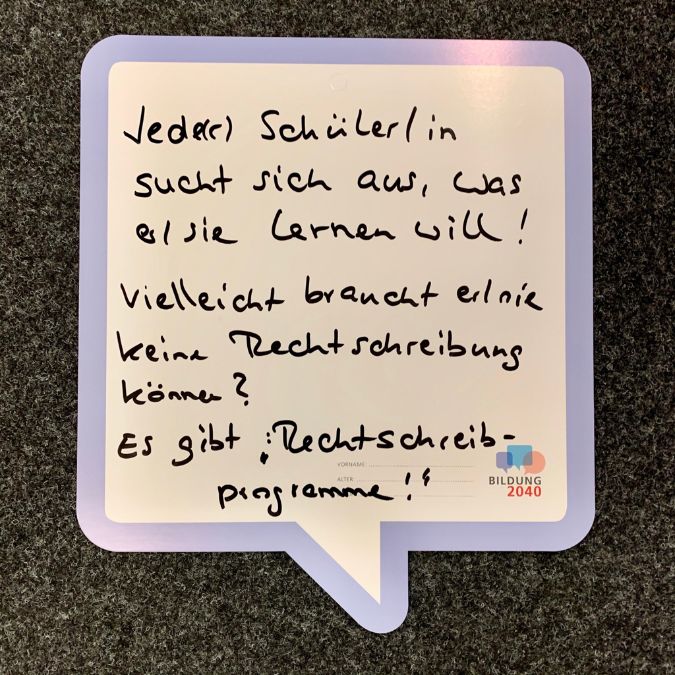 Jede(r) Schüler/in
sucht sich aus, was
er/sie lernen will!
Vielleicht braucht er/sie
keine Rechtschreibung
können?
Es gibt „Rechtschreib-
programme!“
VORNAME
ALTER
BILDUNG
2040